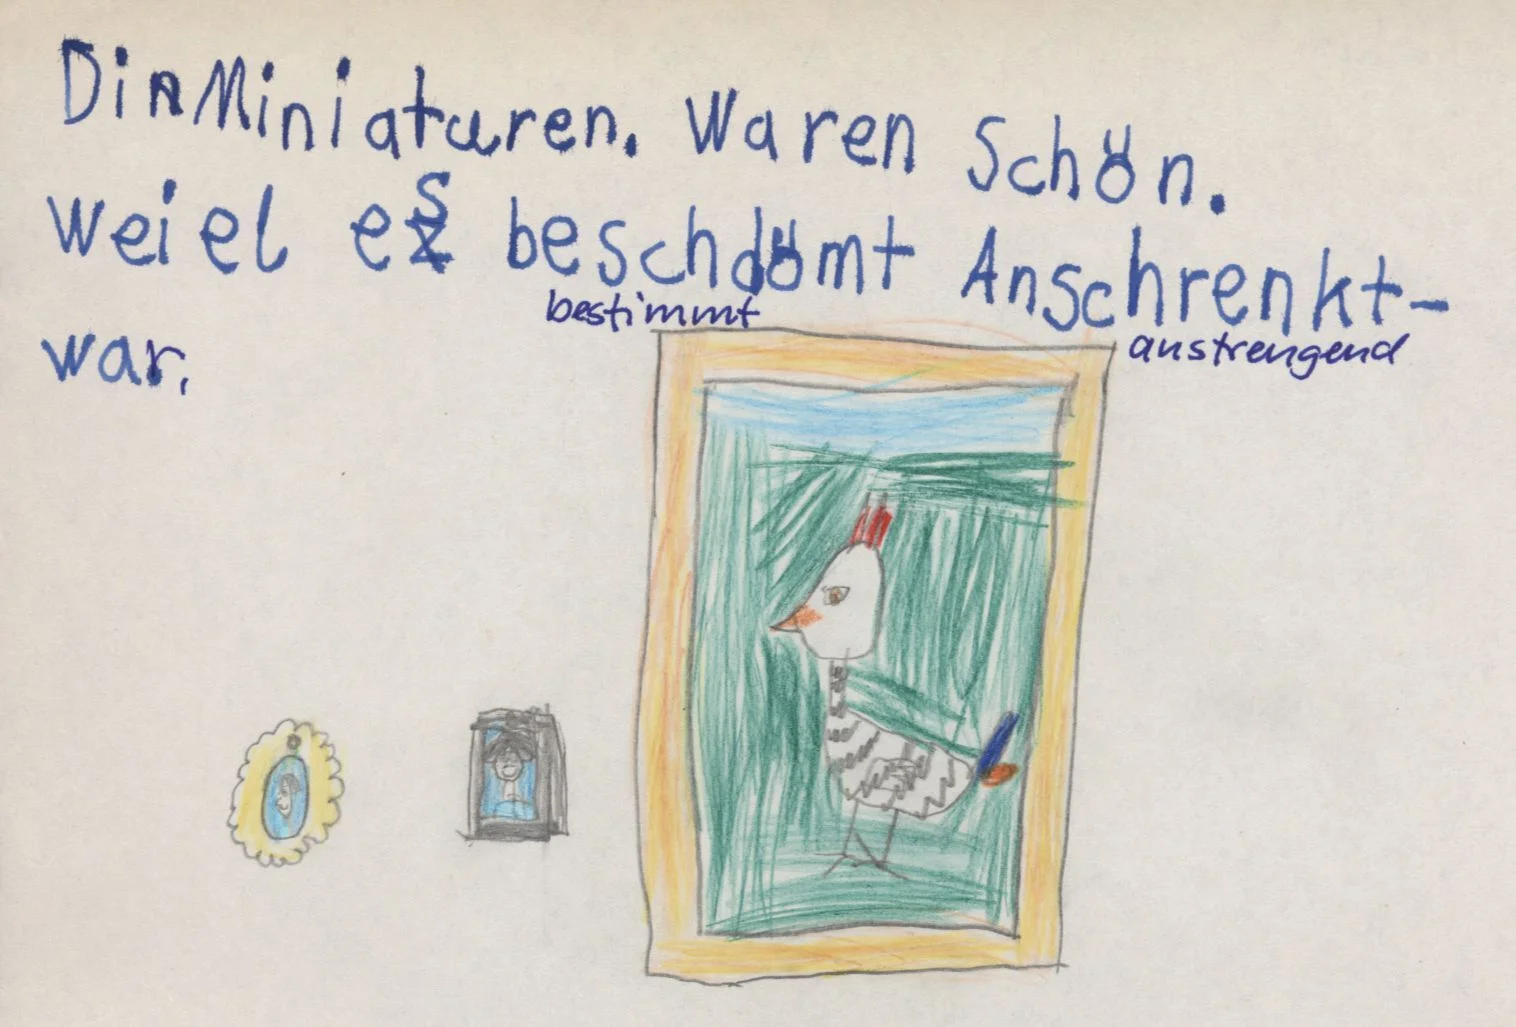 Din Miniaturen. Waren Schön.
weiel es beschdömt Anschrenkt-
bestimmt
anstrengend
war.